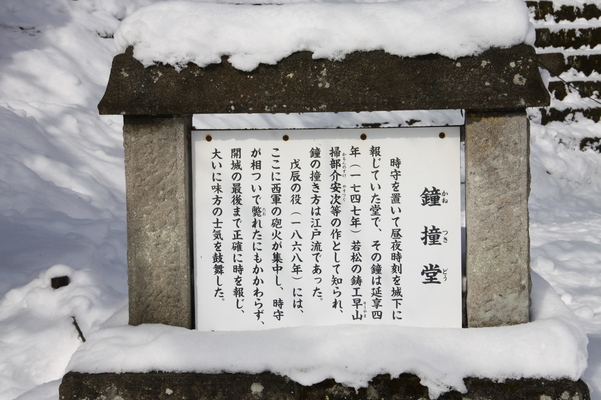 鐘撞堂
かねつきどう
時守を置いて昼夜時刻を城下に
報じていた堂で、その鐘は延享四
年（一七四七年）若松の鋳工早山
掃部介安次等の作として知られ、
鐘の撞き方は江戸流であった。
戊辰の役（一八六八年）には、
ここに西軍の砲火が集中し、時守
が相ついで斃れたにもかかわらず、
開城の最後まで正確に時を報じ、
大いに味方の士気を鼓舞した。